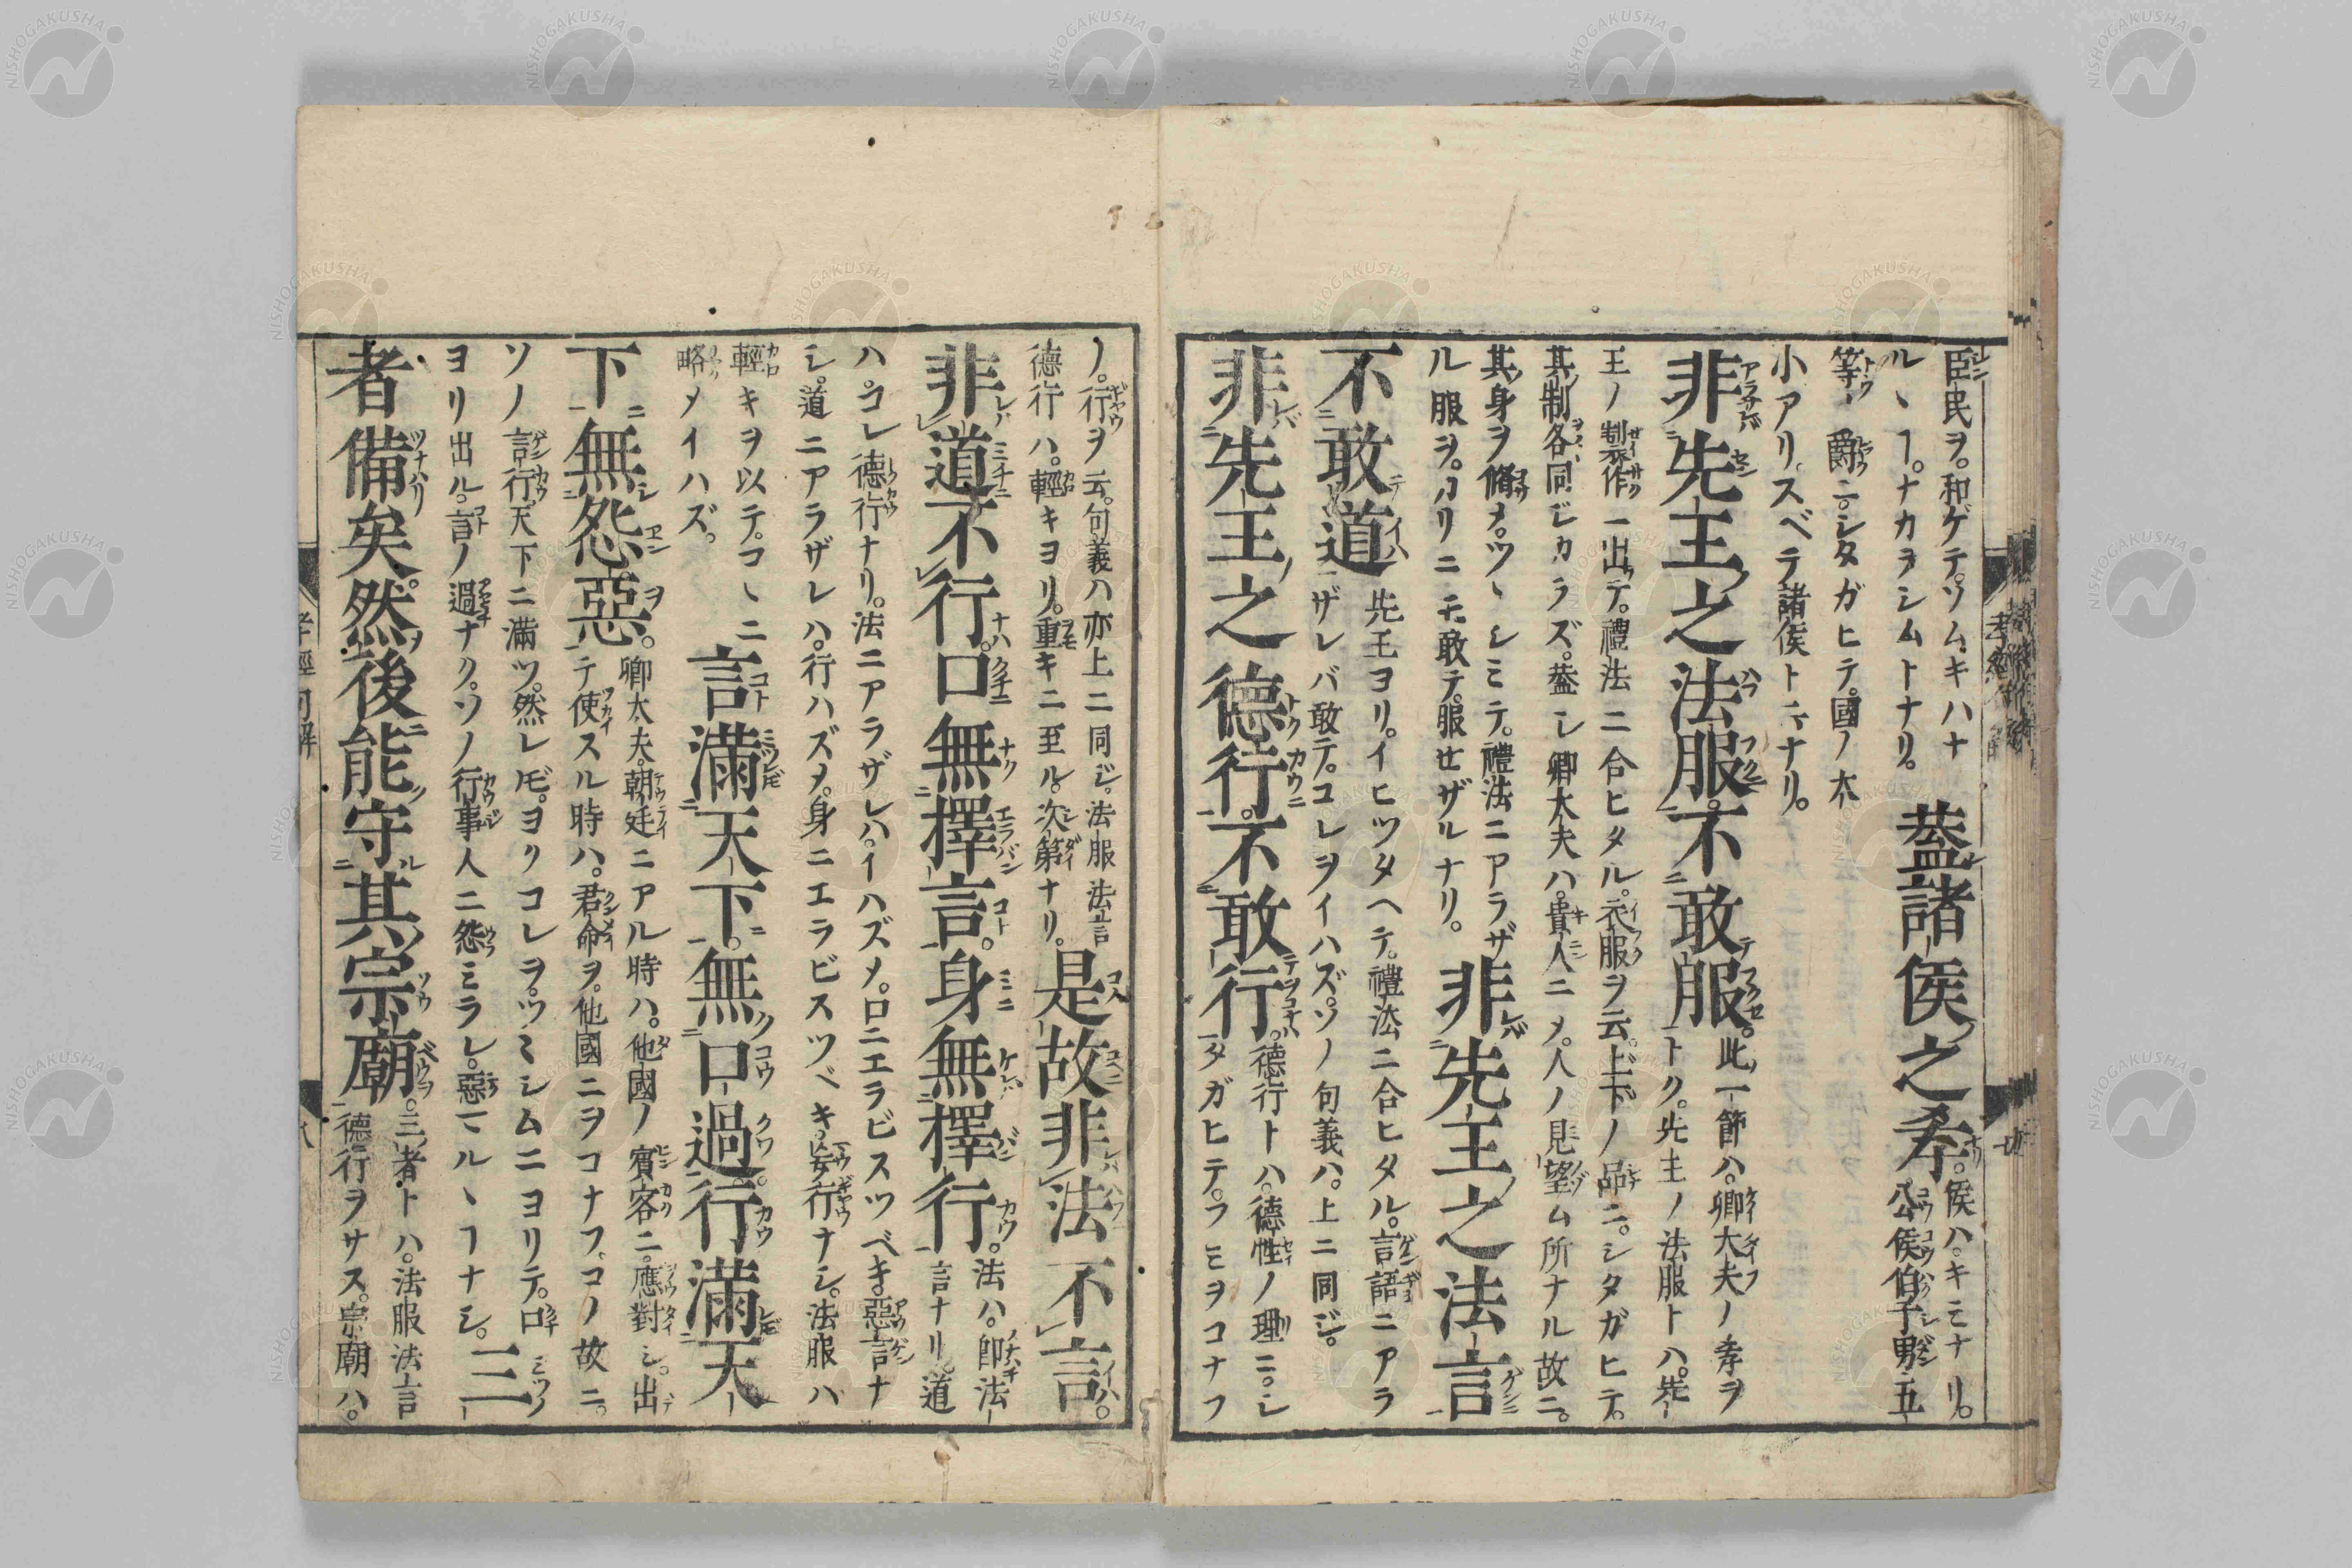 臣民ヲ。和ゲテ。ソムキハナ
ルヽヿ。ナカヲシムトナリ。
蓋諸侯之孝。
侯ハ。キミナリ。
公侯伯子男。五
等ノ爵ニ。シタガヒテ。國ノ大
小アリ。スベテ諸侯ト云ナリ。
非先王之法服。不敢服。
此一節ハ。卿大夫ノ孝ヲ
トク。先王ノ法服トハ。先
王ノ製作一出テ。禮法ニ合ヒタル。衣服ヲ云。上下ノ品ニ。シタガヒテ。
其制各同じカラズ。蓋シ卿大夫ハ。貴人ニメ。人ノ見望ム所ナル故ニ。
其身ヲ脩メ。ツヽシミテ。禮法ニアラザ
ル服ヲ。カリニモ敢テ。服セザルナリ。
非先王之法言
不敢道
先王ヨリ。イヒツタヘテ。禮法ニ合ヒタル。言語ニアラ
ザレバ敢テ。コレヲイハズ。ソノ句義ハ。上ニ同ジ。
非先王之德行。不敢行。
德行トハ。德性ノ理ニ。シ
タガヒテ。フミヲコナフ
ノ。行ヲ云。句義ハ亦上ニ同ジ。法服法言
德行ハ。輕キヨリ。重キニ至ル。次第ナリ。
是故非法不言。
非道不行。口無擇言。身無擇行。
法ハ。即法
言ナリ。道
ハ。コレ德行ナリ。法ニアラザレハ。イハズメ。口ニエラビスツベキ惡言ナ
シ。道ニアラザレハ。行ハズメ。身ニエラビスツベキ。妄行ナシ。法服ハ
輕キヲ以テ。コヽニ
略メイハズ。
言滿天下。無口過。行滿天
下無怨惡。
卿大夫。朝廷ニアル時ハ。他國ノ賓客ニ。應對シ。出
テ使スル時ハ。君命ヲ。他國ニヲコナフ。コノ故ニ。
ソノ言行。天下ニ滿ツ。然レ𪜈。ヨクコレヲ。ツヽシムニヨリテ。口
ヨリ出ル。言ノ過ナク。ソノ行事人ニ怨ミラレ。惡マルヽヿナシ。
三
者備矣。然後能守其宗廟。
三者トハ。法服法言
德行ヲサス。宗廟ハ。
孝經
八